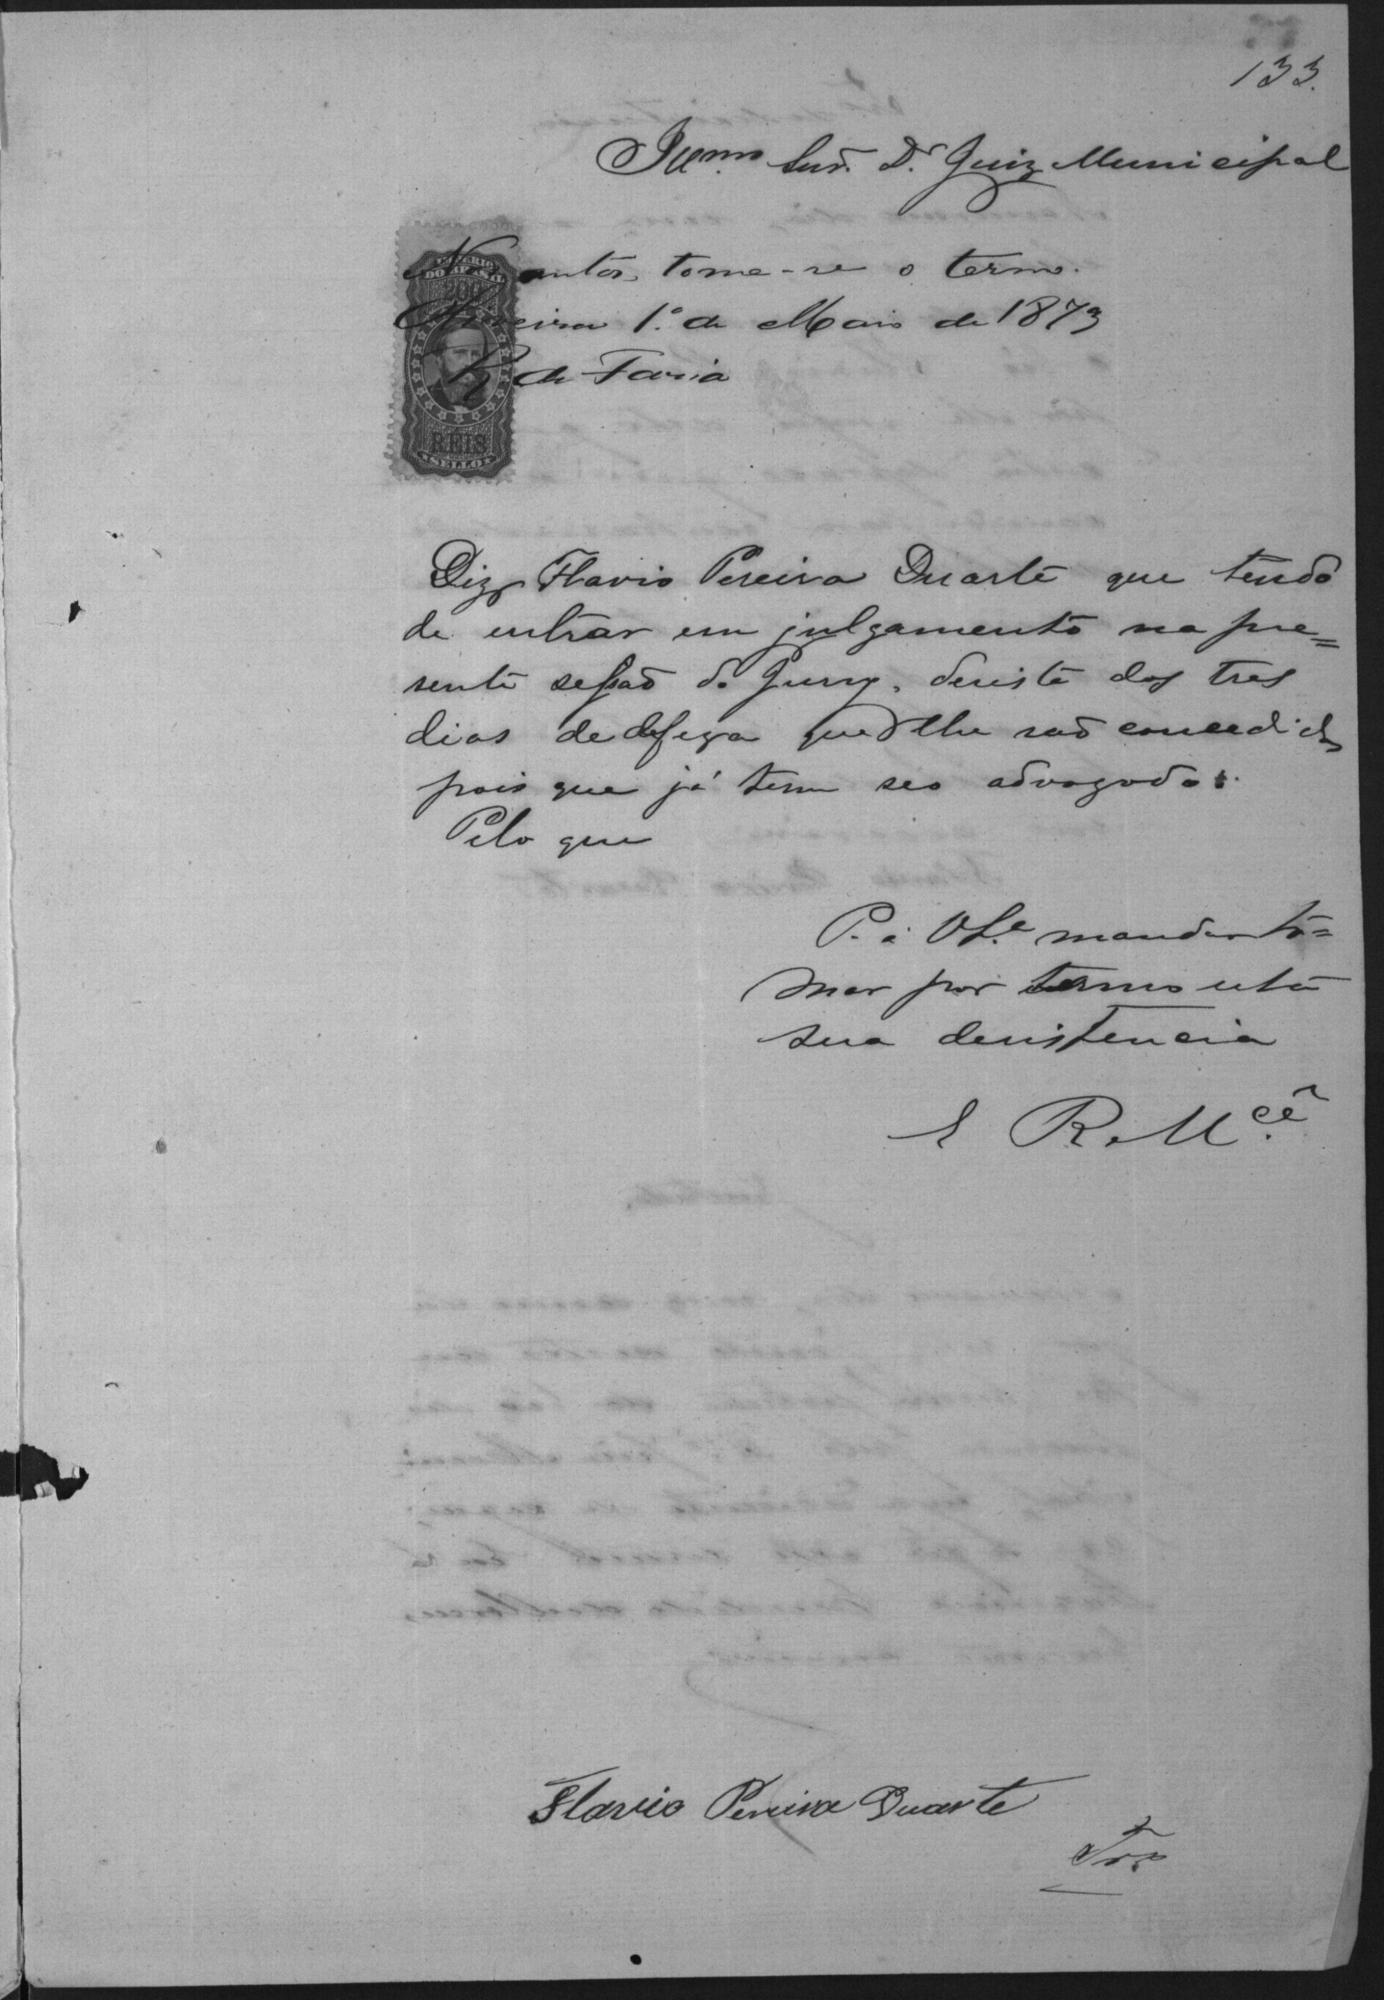 133.
Illmo. Snr. Dr. Juiz Municipal
N. autos, tome-se o termo.
1.º de Maio de 1873
R de Faria
IMPERIO
DO BRASIL
200
REIS
SELLO
Diz Flavio Pereira Duarte que tendo
de entrar em julgamento na pre=
sente sessaõ do Jury, desiste dos tres
dias de defeza que lhe saõ concedidos
pois que já tem seo advogado.
Pelo que
P. a VS.ª mandar to=
mar por termo esta
sua desistencia
E R. Mcê
Flavio Pereira Duarte